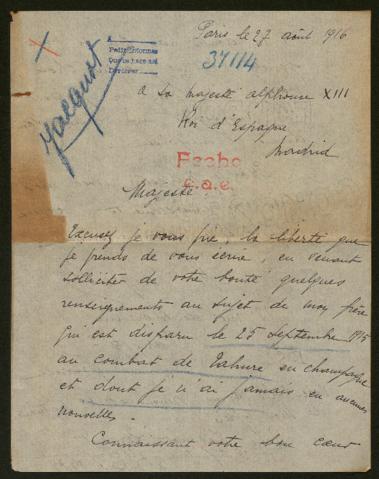 Paris le 27 août 1916
37114
Jacquot
à sa majesté alphonse XIII
Roi d'Espagne
Madrid
Fecho
c.a.e
Majesté
Excusez je vous prie, la liberté que
je prends de vous écrire, en venant
solliciter de votre bonté quelques
renseignements au sujet de mon frère
qui est disparu le 25 septembre 1915
au combat de Tahure en champagne
et dont je n'ai jamais eu aucunes
nouvelles.
Connaissant votre bon cœur